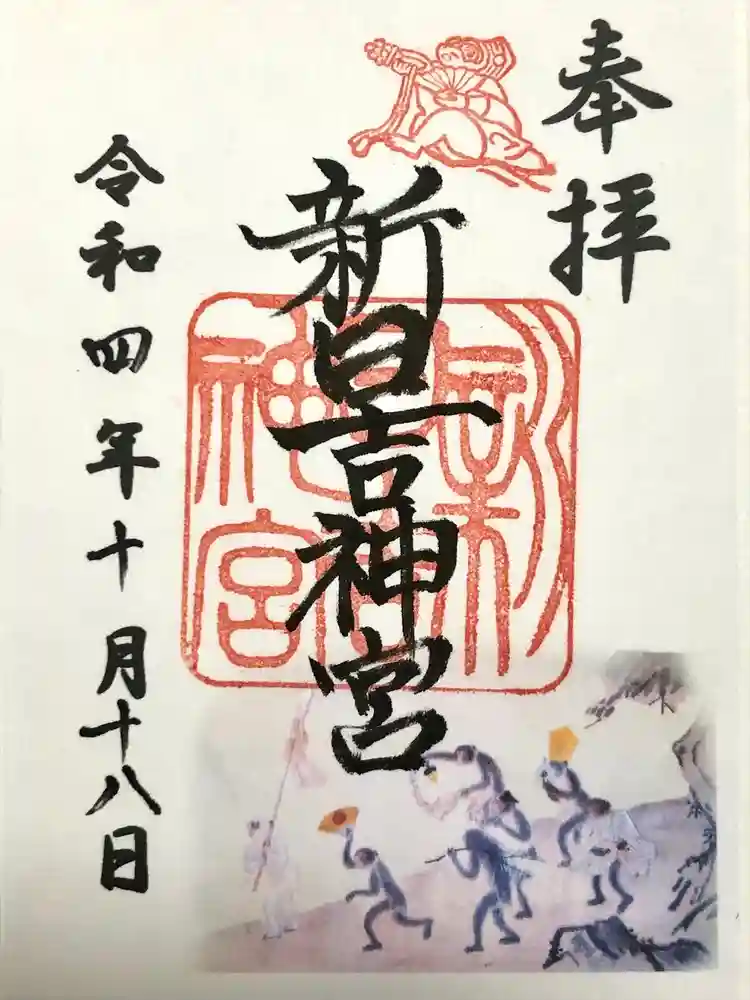 奉拝
新日吉神宮
新日吉神宮
令和四年十月十八日